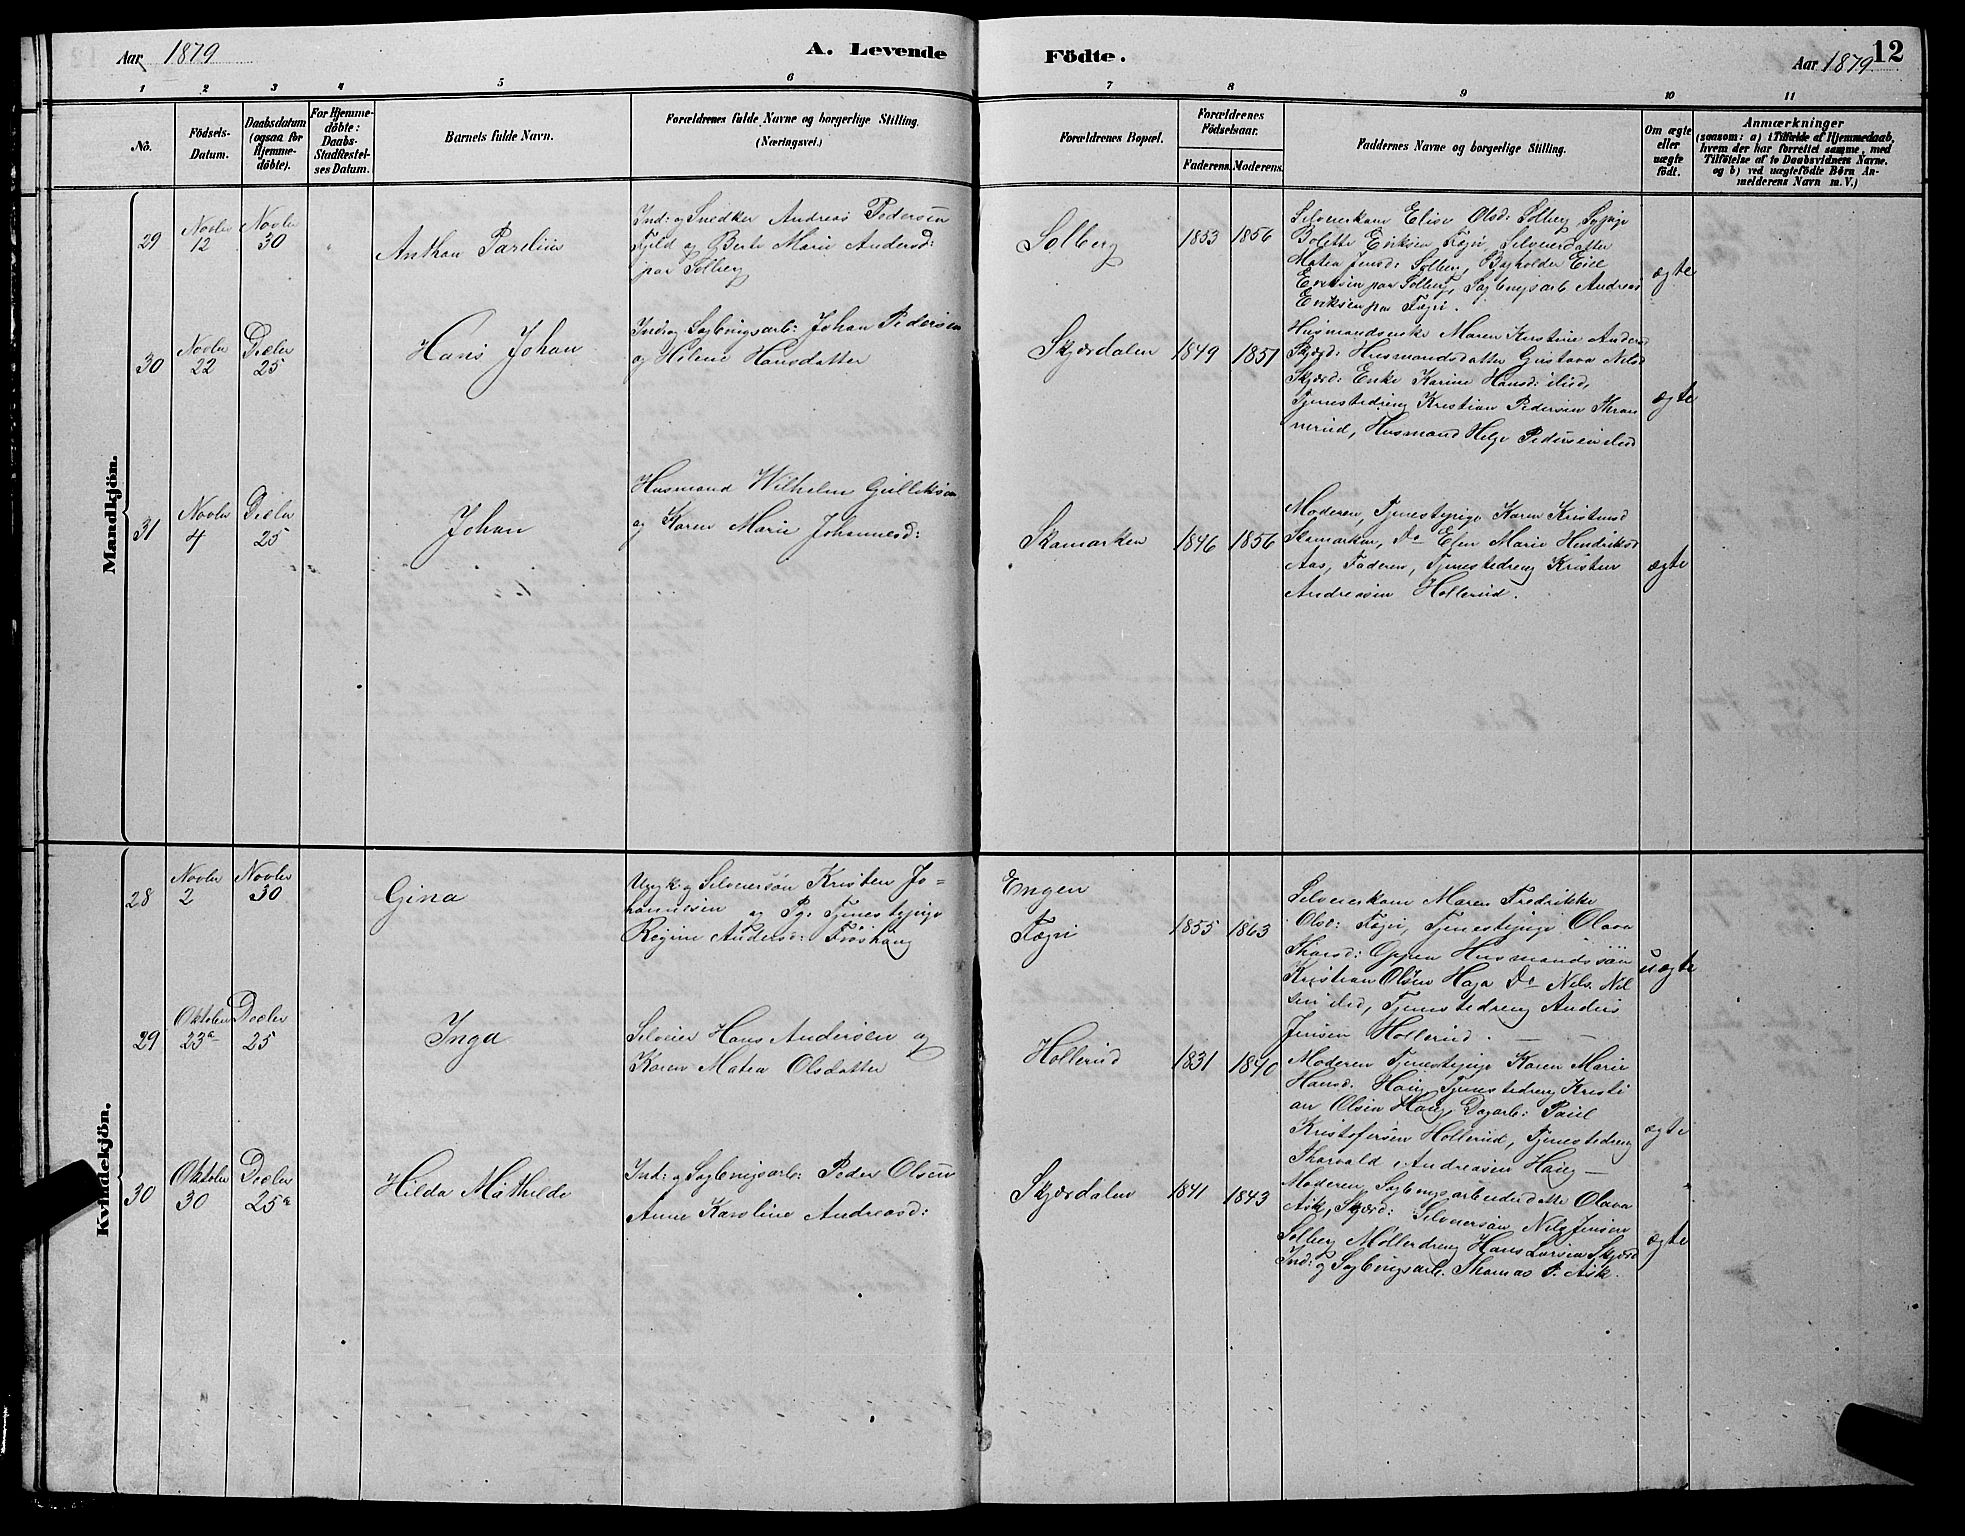 Aar 1879
A. Levende Födte.
Aar 1879
12
1 2 3 4 5 6 7 8 9 10 11
No.
Födsels-
Datum.
Daabsdatum
(ogsaa for
Hjemme-
döbte).
For Hjemme-
döbte:
Daabs-
Stadfestel-
ses Datum.
Barnets fulde Navn.
Forældrenes fulde Navne og borgerlige Stilling.
(Næringsvei.)
Forældrenes Bopæl.
Forældrenes
Födselsaar.
Faderens. Moderens.
Faddernes Navne og borgerlige Stilling.
Om ægte
eller
uægte
födt.
Anmærkninger
(saasom: a) i Tilfælde af Hjemmedaab,
hvem der har forrettet samme, med
Tilföielse af to Daabsvidners Navne.
og b) ved uægtefödte Börn An-
melderens Navn m.V.)
Mandkjön.
29
Novbr
12
Novbr
30
Anthon Parelius
Ind: og Snedker Andreas Pedersen
Fjeld og Berte Marie Andersd:
paa Solberg
Solberg
1853 1856
Selveierkone Elise Olsd: Solberg,
Bolette Eriksen Fægri, Selveierdatter
Matea Jensd: Solberg,
Eriksen paa Solberg, Sagbrugsarb Andreas
Eriksen paa Fægri.
ægte
30
Novbr
22
Decbr
25
Hans Johan
Ind: og Sagbrugsarb: Johan Pedersen
og Helene Hansdatter
Skjærdalen
1849 1851
Husmandsenke Maren Kristine Anders
Skjærd: Husmandsdatter Gustava Nilsd
Skjærd: Enke Karine Hansd: ibid,
Tjenestedreng Kristian Pedersen
Husmand Helge Pedersen ibid
ægte
31
Novbr
4
Decbr
25
Johan
Husmand Wilhelm Gulliksen
og Karen Marie Johannesd:
Skamarken
1846 1856
Moderen, Tjenestepige Karen Kristensd
Skamarken, Do Elen Marie Hendriksd
Aas, Faderen, Tjenestedreng Kristen
Andreasen Hollerud.
ægte
Kvindekjön.
28
Novbr
2
Novbr
30
Gina
Ungk: og Selveiersön Kristen Jo=
hannesen og Pg. Tjenestepige
Regine Andersd: Fröshaug
Engen
Fægri
1855 1863
Selveierkone Maren Fredrikke
Olsd: Fægri, Tjenestepige Olava
Thorsd: Oppen Husmandssön
Kristian Olsen Haga Do Nils Nil
sen ibid, Tjenestedreng Anders
Jensen Hollerud.
uægte
29
Oktober
23de
Decbr
25
Inga
Selveier Hans Andersen og
Karen Matea Olsdatter
Hollerud
1831 1840
Moderen Tjenestepige Karen Marie
Hansd. Haug, Tjenestedreng Kristi
an Olsen Haug, Dagarb: Paul
Kristofersen Hollerud, Tjenestedreng
Thorvald Andreasen Haug
ægte
30
Oktober
30
Decbr
25de
Hilda Mathilde
Ind: og Sagbrugsarb: Peder Olsen
Anne Karoline Andreasd:
Skjærdalen
1841 1843
Moderen, Sagbrugsarbeiderdatter Olava
Ask, Skjærd: Selveiersön Nils Jensen
Solberg Möllerdreng Hans Larsen Skjærd
Ind: og Sagbrugsarb. Thomas P. Ask.
ægte